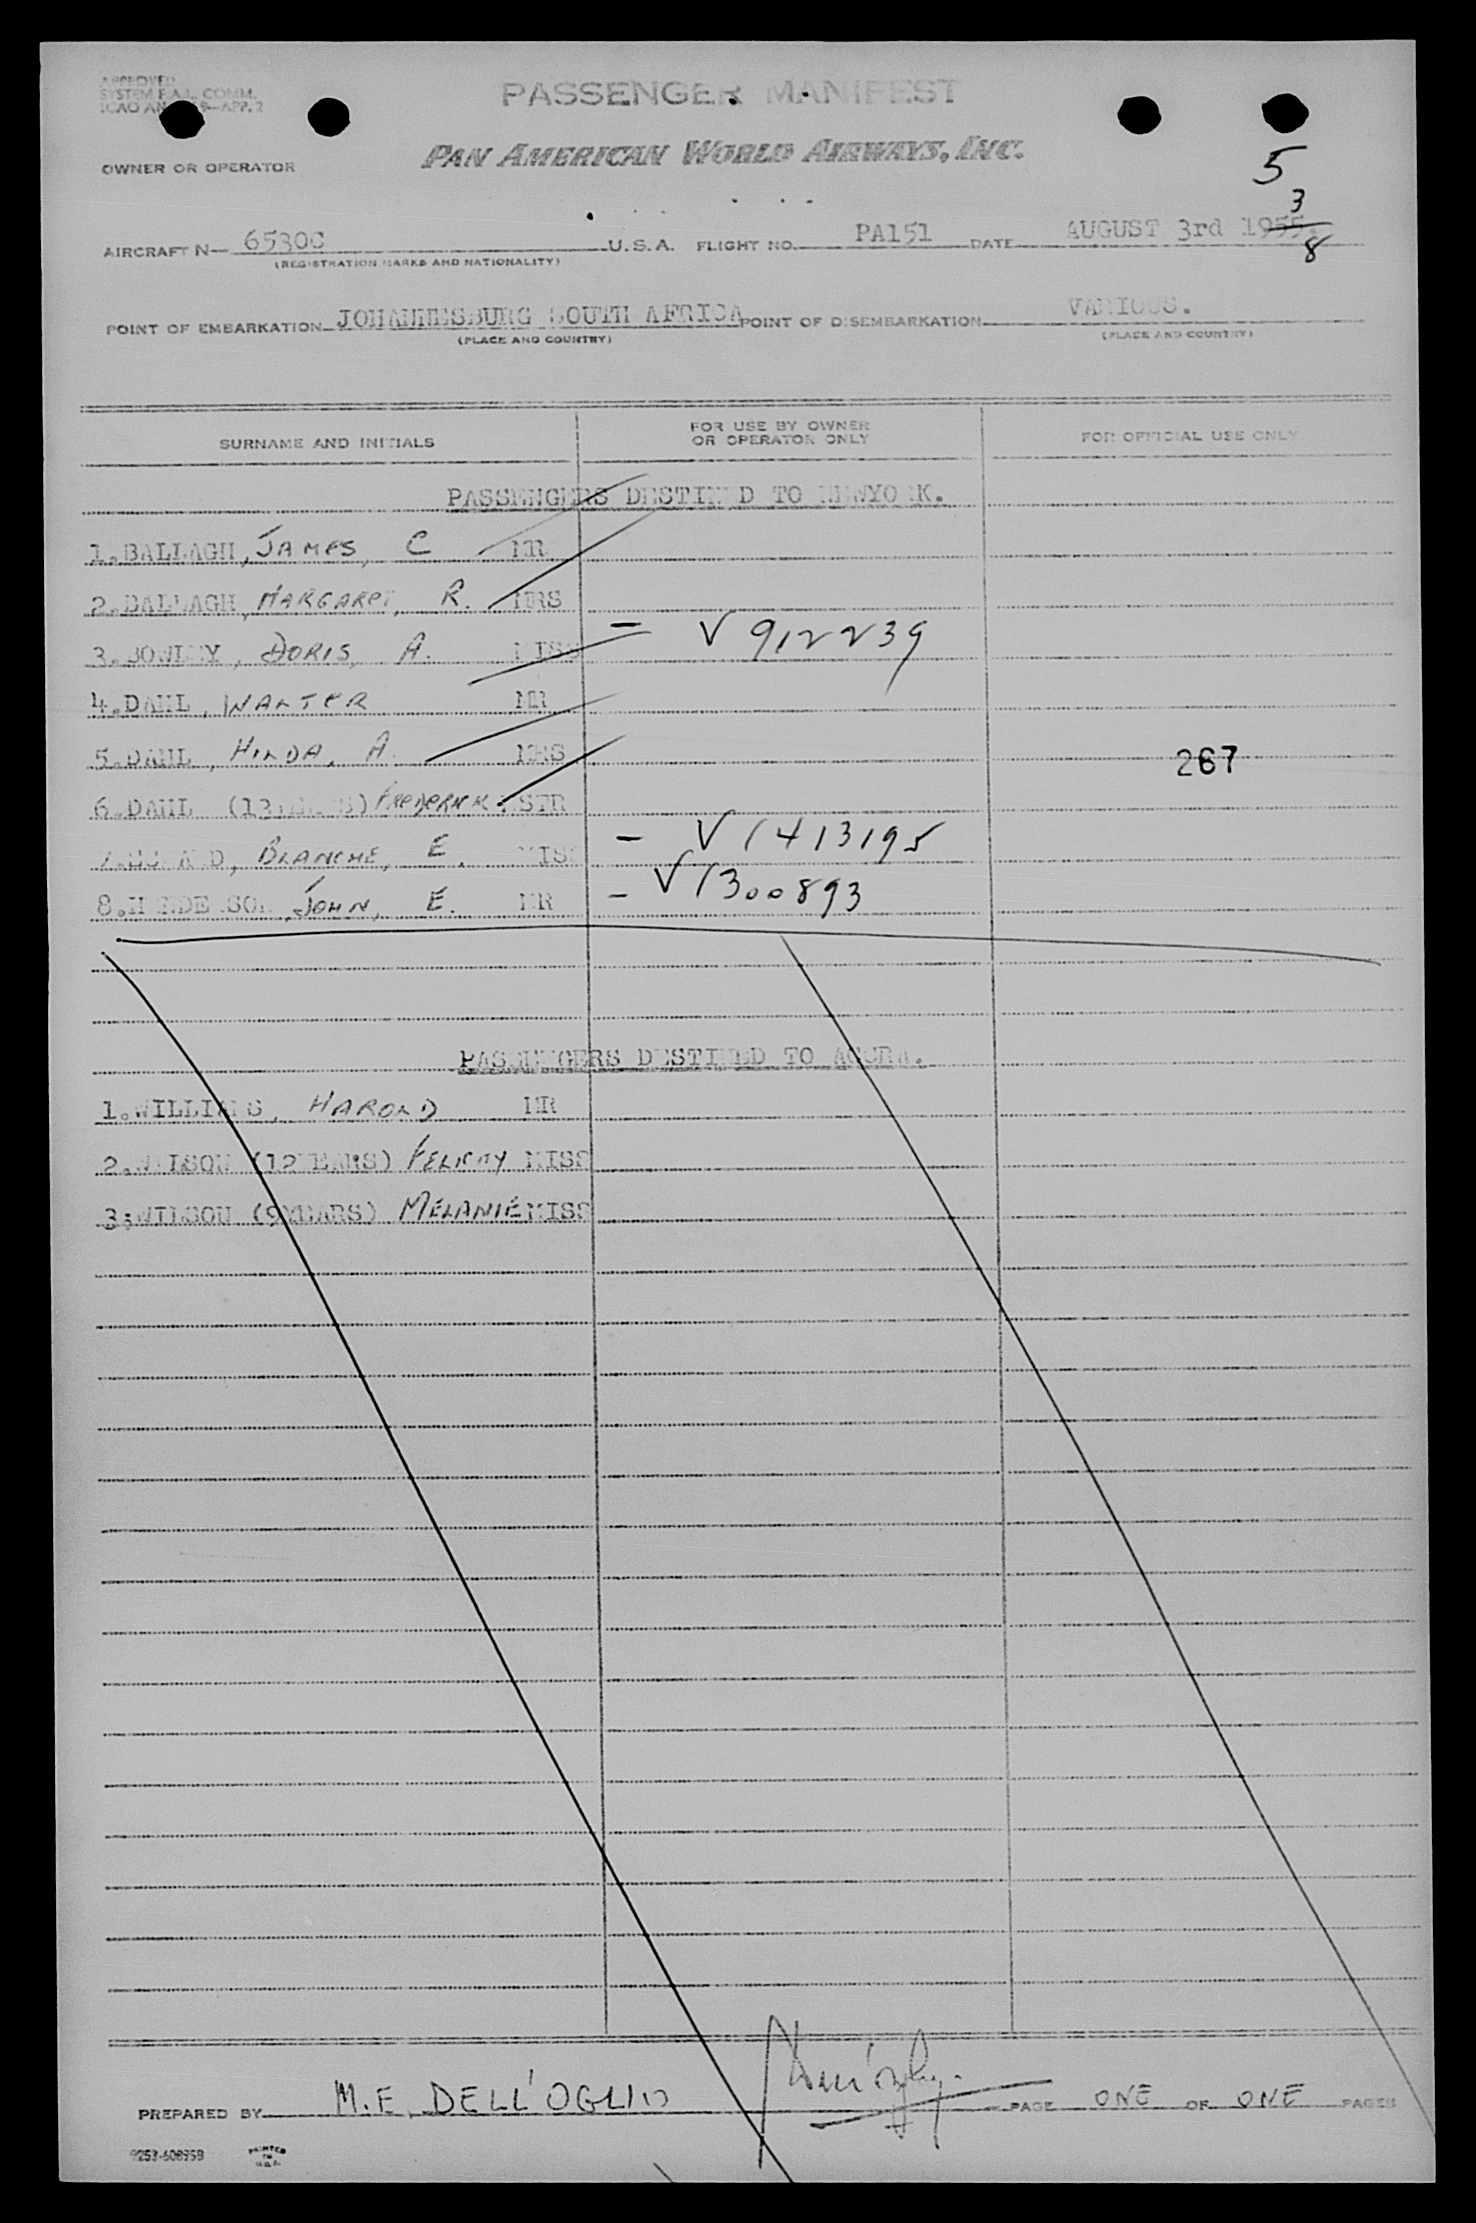 APPROVED
SYSTEM F.A.L. COMM.
ICAO AN 9—APP. 2
PASSENGER MANIFEST
PAN AMERICAN WORLD AIRWAYS, INC.
OWNER OR OPERATOR
5
3
8
AIRCRAFT N— 6530C U.S.A. FLIGHT NO. PA151 DATE AUGUST 3rd 1955.
(REGISTRATION MARKS AND NATIONALITY)
POINT OF EMBARKATION JOHANNESBURG SOUTH AFRICA POINT OF DISEMBARKATION VARIOUS.
(PLACE AND COUNTRY) (PLACE AND COUNTRY)
SURNAME AND INITIALS FOR USE BY OWNER OR OPERATOR ONLY FOR OFFICIAL USE ONLY
PASSENGERS DESTINED TO NEWYORK.
1.BALLAGH, JAMES, C MR
2.BALLAGH, MARGARET, R. MRS
3.BOWLEY, DORIS, A. MISS — V 912239
4.DAHL, WALTER MR
5.DAHL, HILDA, A. MRS
267
6.DAHL (13YEARS) FREDERICK MSTR
7. BLANCHE, E. MISS — V 1413195
8.HENDERSON, JOHN, E. MR — V 1300893
PASSENGERS DESTINED TO ACCRA.
1.WILLIAMS, HAROLD MR
2.WILSON (12YEARS) FELICITY MISS
3;WILSON (9YEARS) MELANIE MISS
PREPARED BY M.E. DELL'OGLIO PAGE ONE OF ONE PAGES
9253-608958 PRINTED IN U.S.A.